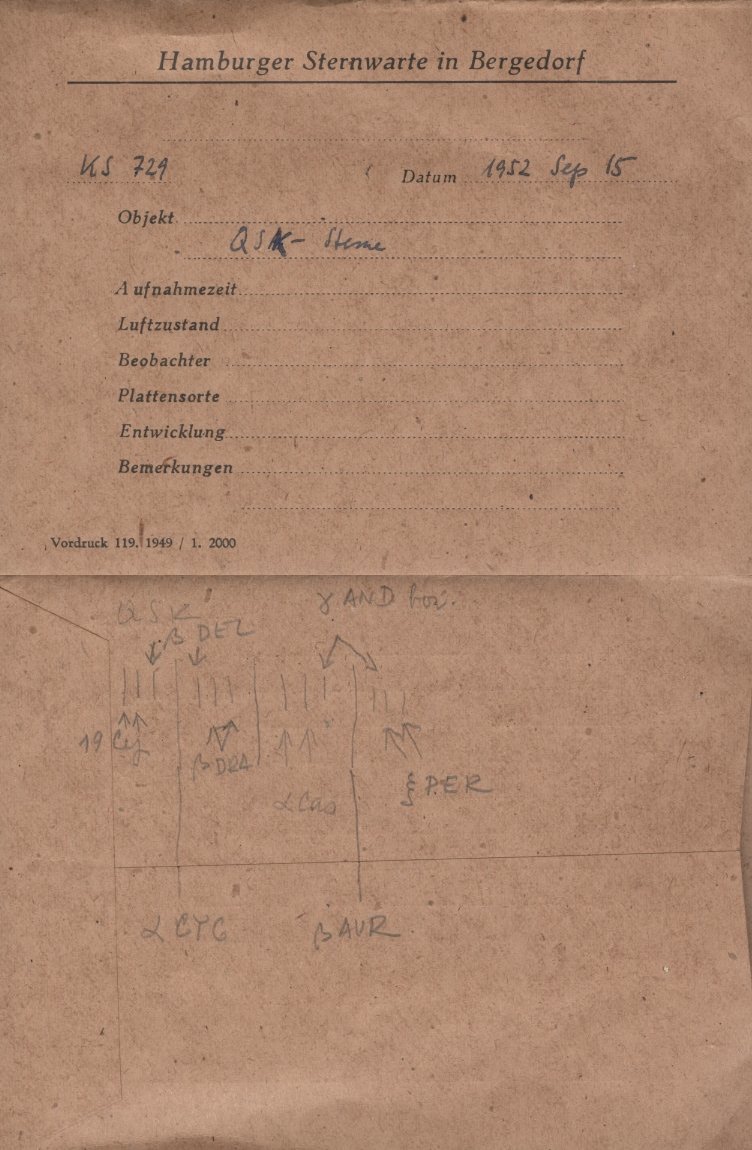 Hamburger Sternwarte in Bergedorf
KS 729 Datum 1952 Sep 15
Objekt
QSK - Sterne
Aufnahmezeit
Luftzustand
Beobachter
Plattensorte
Entwicklung
Bemerkungen
Vordruck 119. 1949 / 1. 2000
QSK γ AND
β DEL
19 Cep
β DRA
α Cas ξ PER
α CYG β AUR